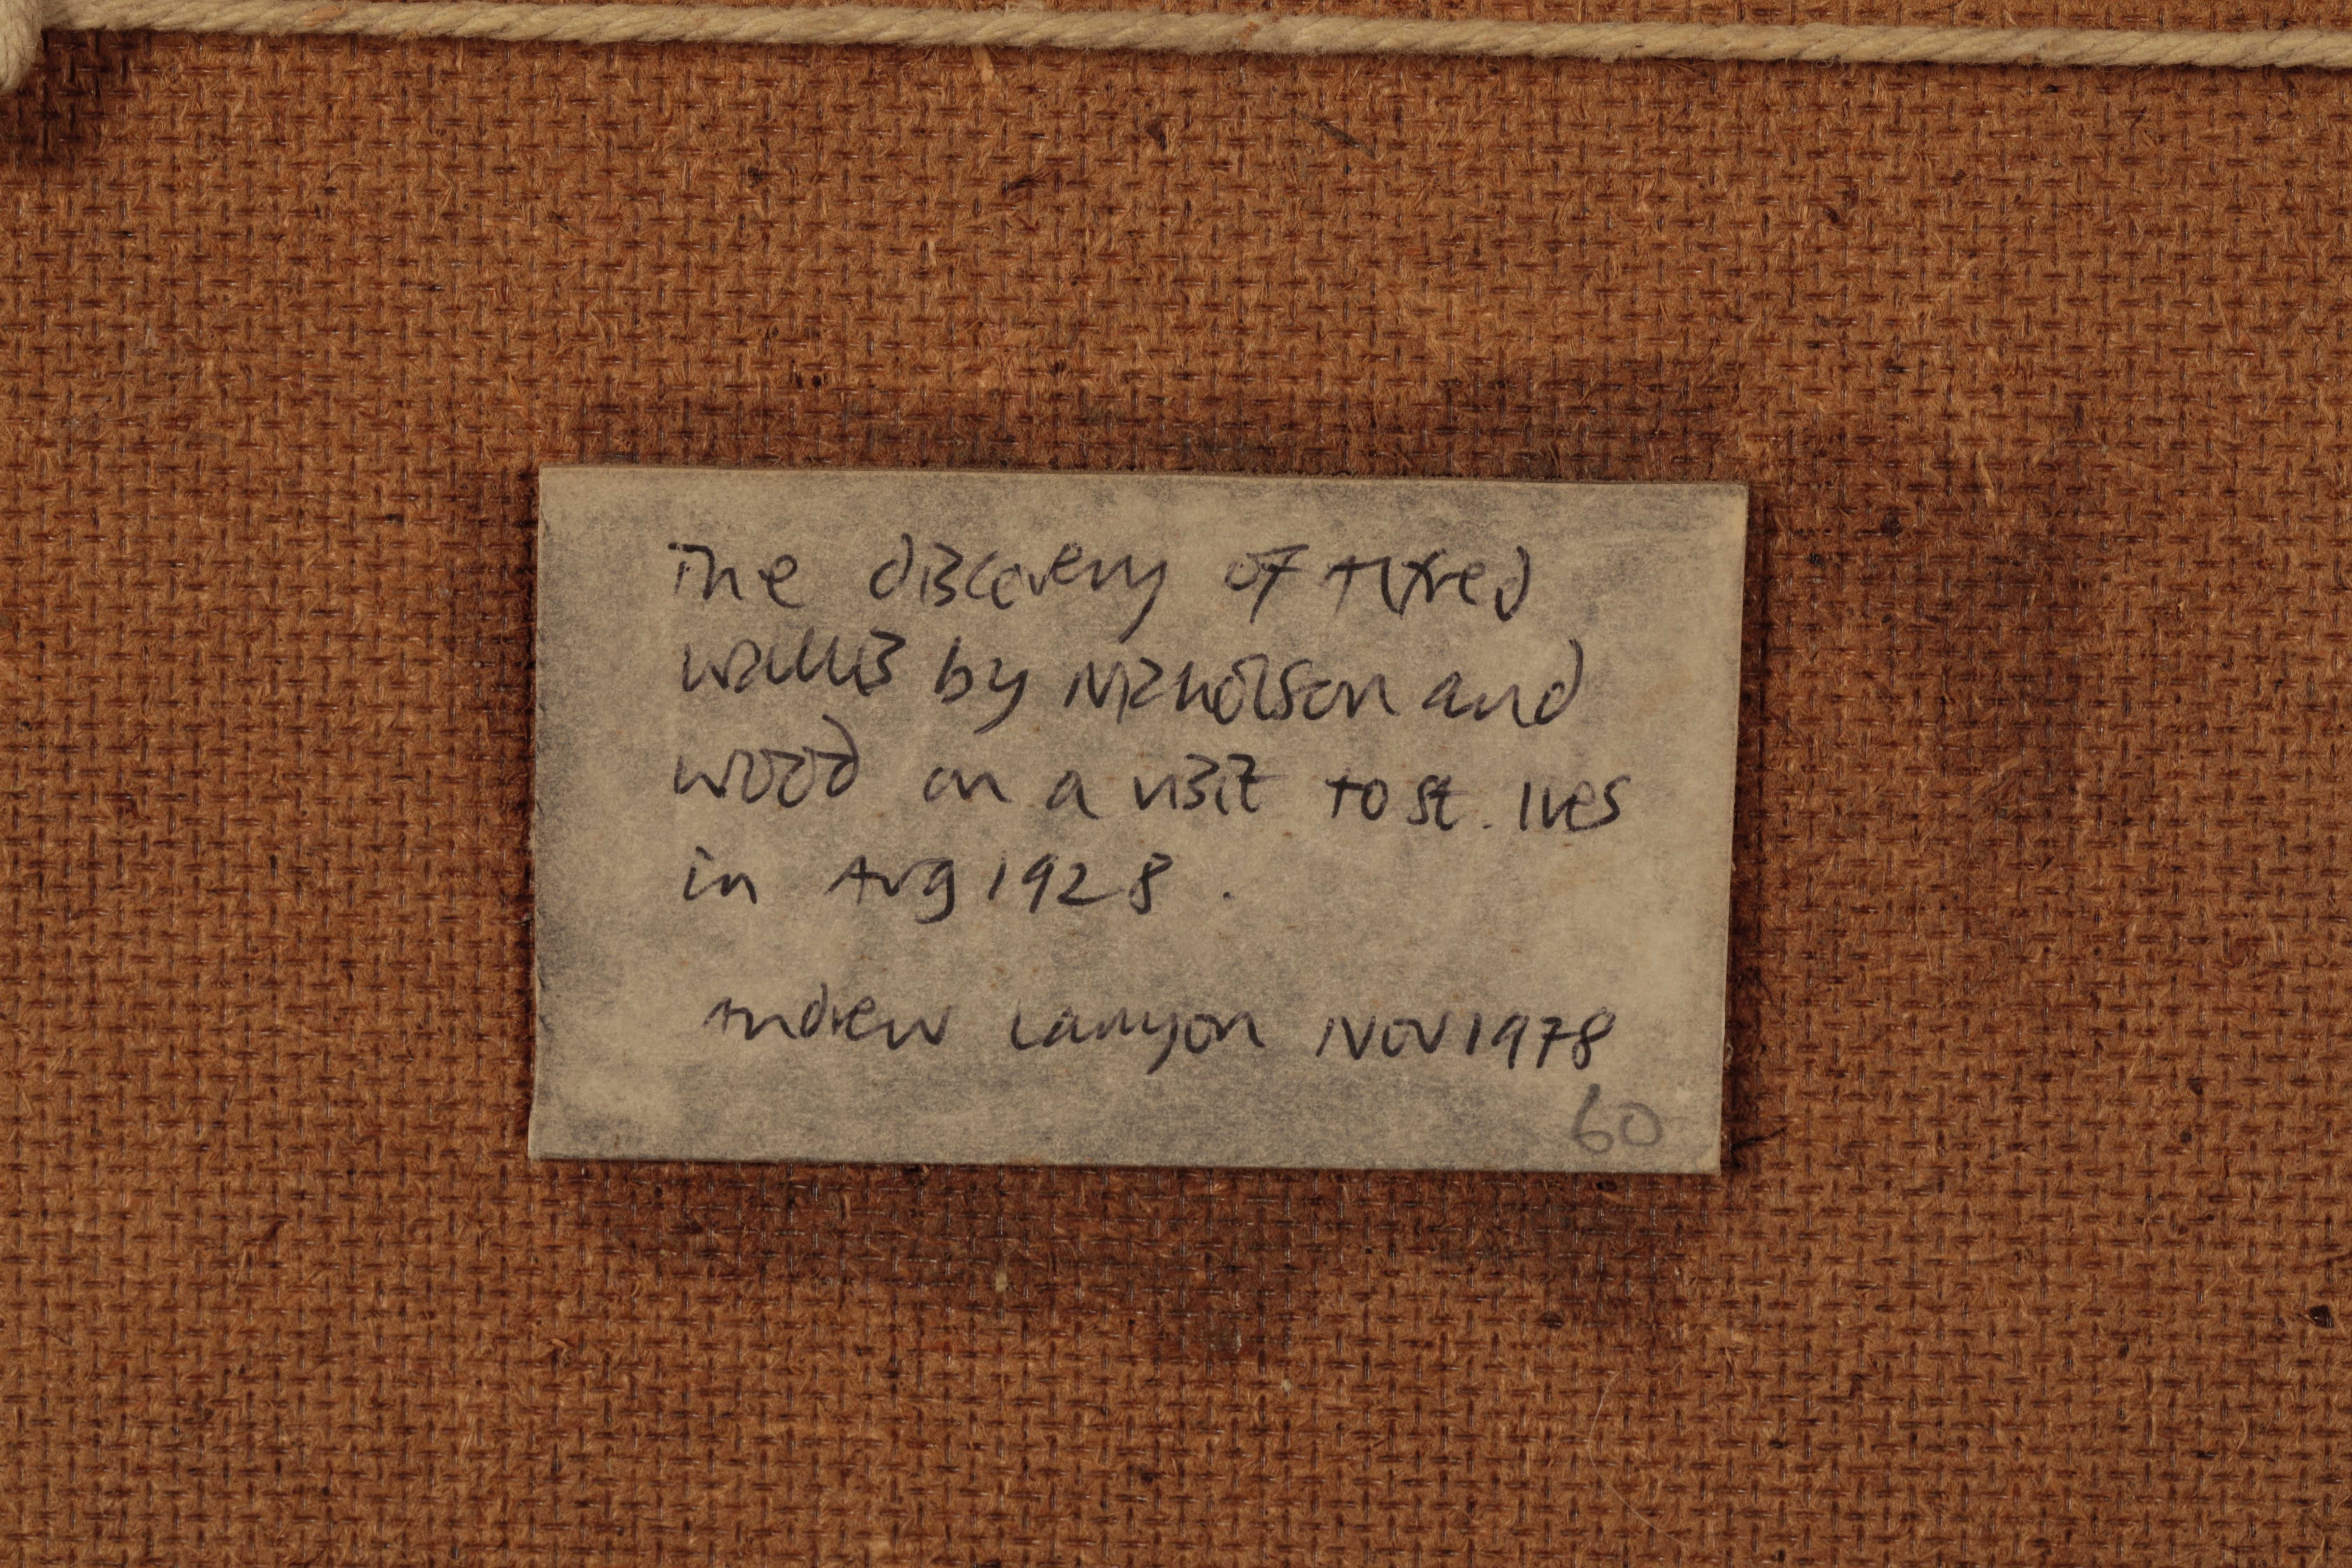 The discovery of Alfred
Wallis by Nicholson and
Wood on a visit to St. Ives
in Aug 1928.
Andrew Lanyon Nov 1978
60